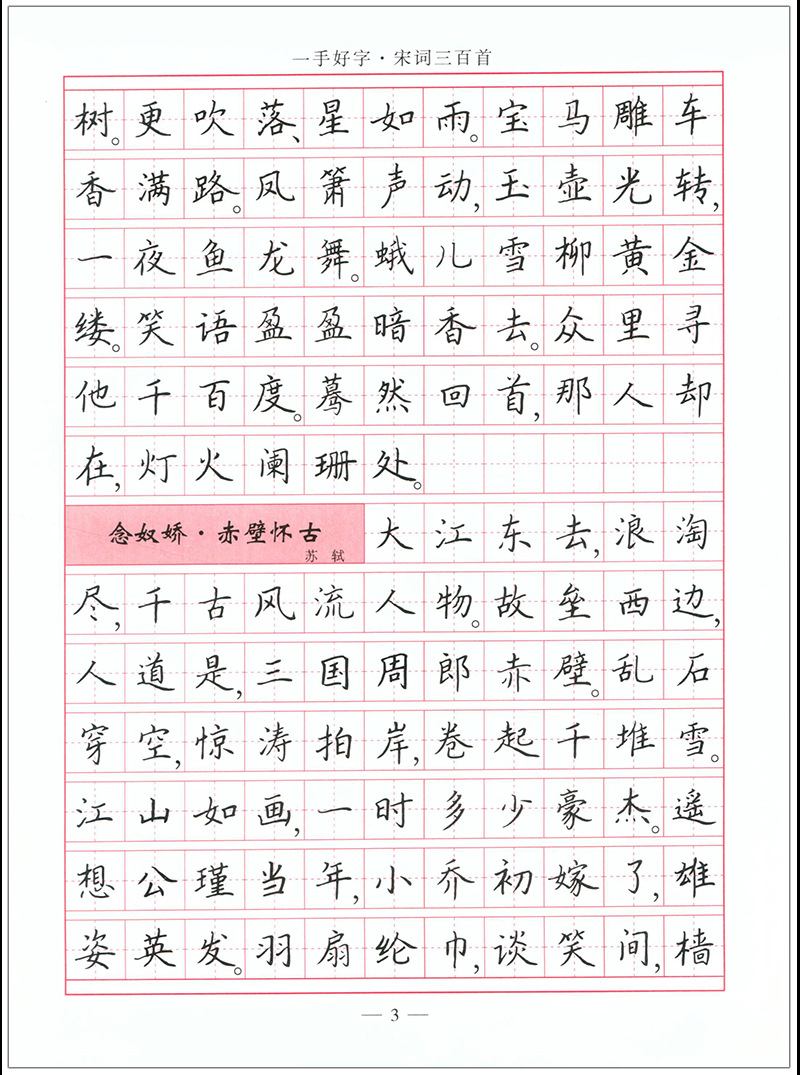 一手好字·宋词三百首
树。更吹落、星如雨。宝马雕车
香满路。凤箫声动,玉壶光转,
一夜鱼龙舞。蛾儿雪柳黄金
缕。笑语盈盈暗香去。众里寻
他千百度。蓦然回首,那人却
在,灯火阑珊处。
念奴娇·赤壁怀古
苏轼
大江东去,浪淘
尽,千古风流人物。故垒西边,
人道是,三国周郎赤壁。乱石
穿空,惊涛拍岸,卷起千堆雪。
江山如画,一时多少豪杰。遥
想公瑾当年,小乔初嫁了,雄
姿英发。羽扇纶巾,谈笑间,樯
— 3 —